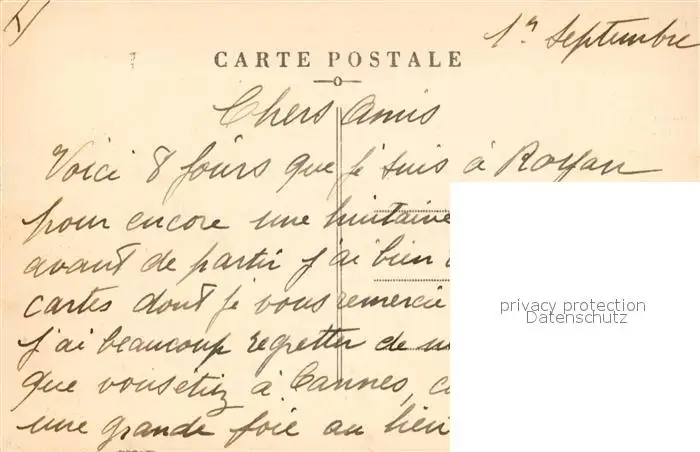 1er Septembre
CARTE POSTALE
Chers Amis
Voici 8 jours que je suis à Royan
pour encore une huitaine
avant de partir j'ai bien
cartes dont je vous remercie
j'ai beaucoup regretter de
que vous etiez à Cannes,
une grande foie au lieu
privacy protection
Datenschutz